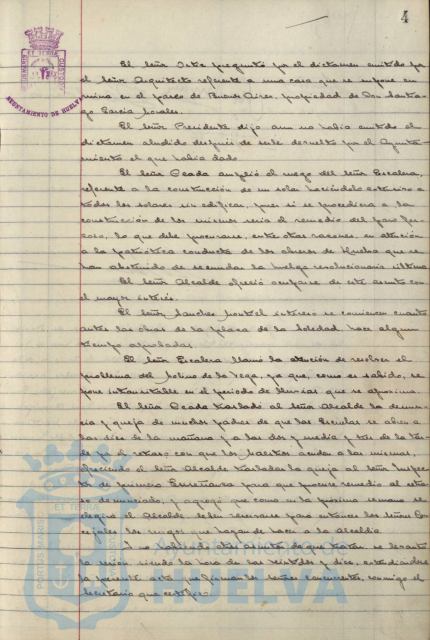 4
AYUNTAMIENTO DE HUELVA
El Señor Oste preguntó por el dictamen emitido por
el Señor Arquitecto referente a una casa que se supone en
ruina en el paseo de Buenos Aires, propiedad de Don Santia-
go García Morales.
El Señor Presidente dijo aun no había emitido el
dictamen aludido después de serle devuelto por el Ayunta-
miento el que había dado.
El Señor Ceada amplió el ruego del Señor Escalera,
referente a la construcción de un solar haciéndolo extensivo a
todos los solares sin edificar, pues si se procediera a la
construcción de los mismos sería el remedio del paro for-
zoso, lo que debe procurarse, entre otras razones, en atención
a la patriótica conducta de los obreros de Huelva que se
han abstenido de secundar la huelga revolucionaria última.
El Señor Alcalde ofreció ocuparse de este asunto con
el mayor interés.
El Señor Sanchez Montiel interesó se comiencen cuanto
antes las obras de la plaza de la Soledad, hace algun
tiempo aprobadas.
El Señor Escalera llamó la atención de resolver el
problema del Molino de la Vega, ya que, como es sabido, se
pone intransitable en el periodo de lluvias que se aproxima.
El Señor Ceada trasladó al Señor Alcalde la denun-
cia y queja de muchos padres de que las Escuelas se abren a
las diez de la mañana y a las dos y media y tres de la tar-
de por el retraso con que los Maestros acuden a las mismas,
ofreciendo el Señor Alcalde trasladar la queja al Señor Inspec-
tor de primera Enseñanza para que procure remedio al retra-
so denunciado, y agregó que como en la próxima semana se
elegirá el Alcalde, deben reservarse para entonces los Señores Con-
cejales los ruegos que hayan de hacer a la Alcaldía.
Y no habiendo más asuntos de que tratar, se levantó
la sesión siendo la hora de las veintidós y diez, extendiéndose
la presente acta que firman los Señores concurrentes, conmigo el
Secretario que certifico.
Ayuntamiento de
HUELVA